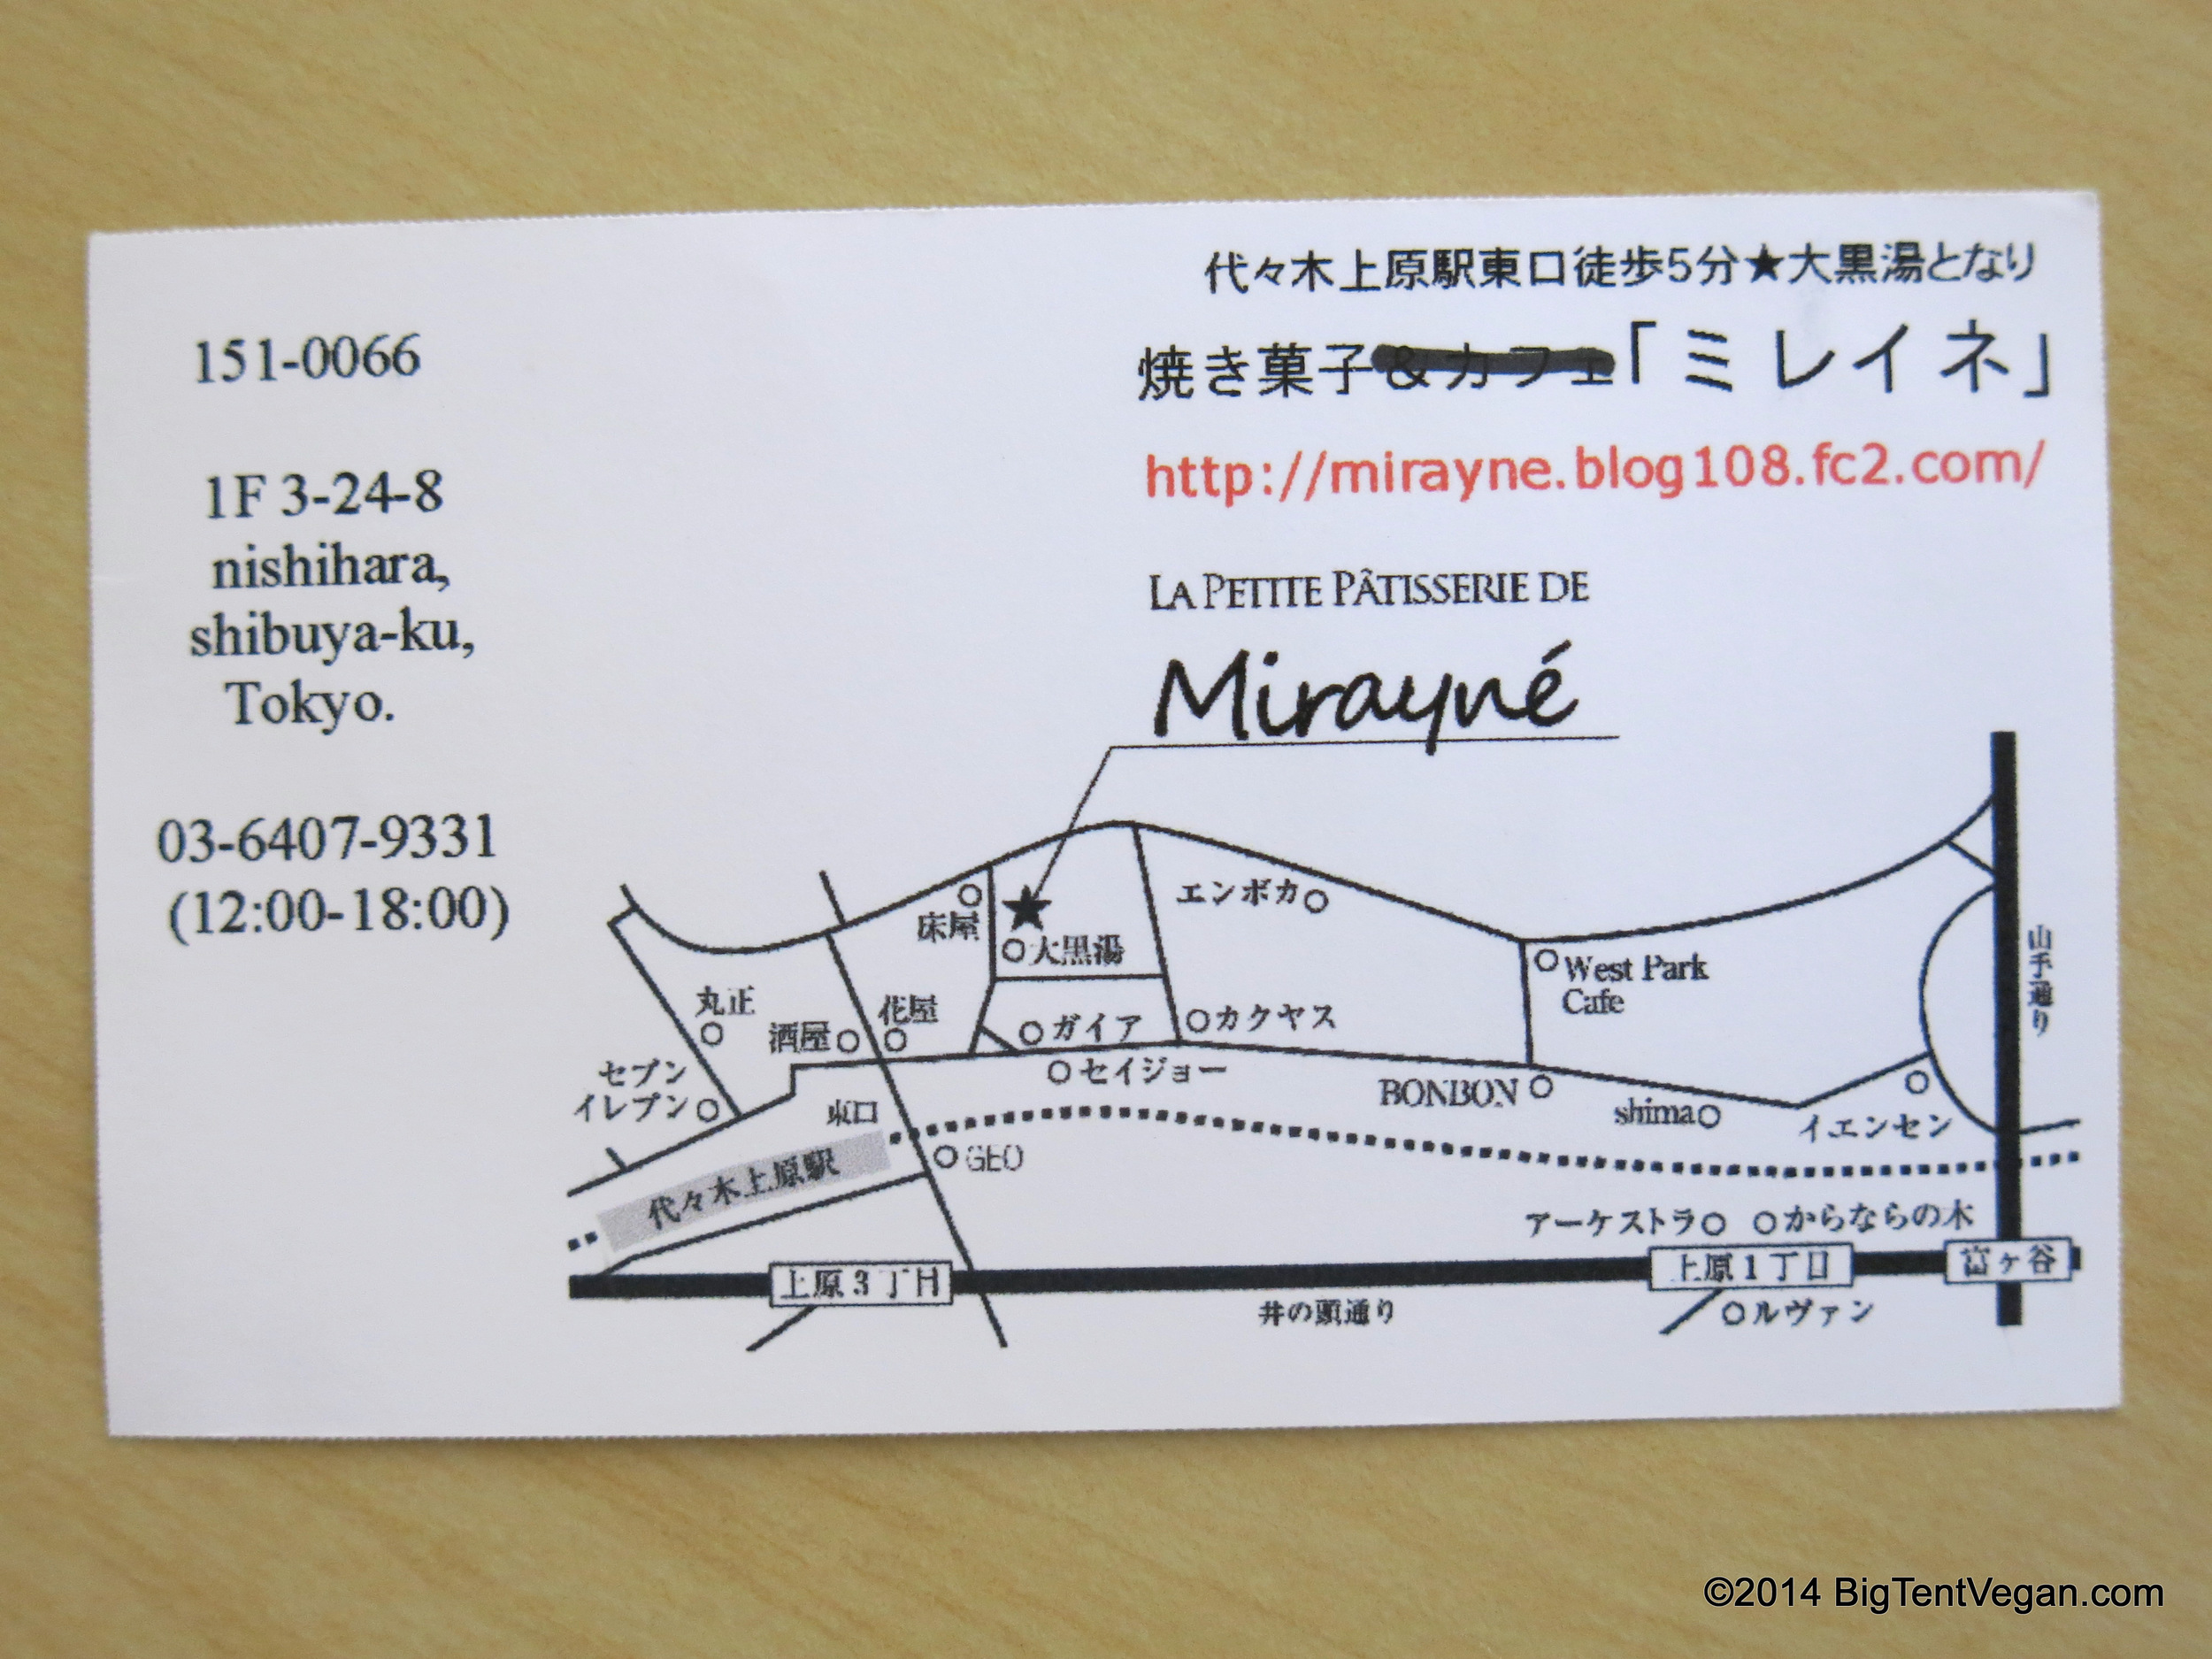 151-0066
1F 3-24-8
nishihara,
shibuya-ku,
Tokyo.
03-6407-9331
(12:00-18:00)
代々木上原駅東口徒歩5分★大黒湯となり
焼き菓子&カフェ「ミレイネ」
http://mirayne.blog108.fc2.com/
LA PETITE PÂTISSERIE DE
Mirayné
床屋
大黒湯
エンボカ
West Park
Cafe
山手通り
丸正
酒屋
花屋
ガイア
カクヤス
セブン
イレブン
セイジョー
BONBON
shima
イエンセン
東口
GEO
代々木上原駅
アーケストラ
からならの木
上原3丁目
上原1丁目
富ヶ谷
井の頭通り
ルヴァン
©2014 BigTentVegan.com